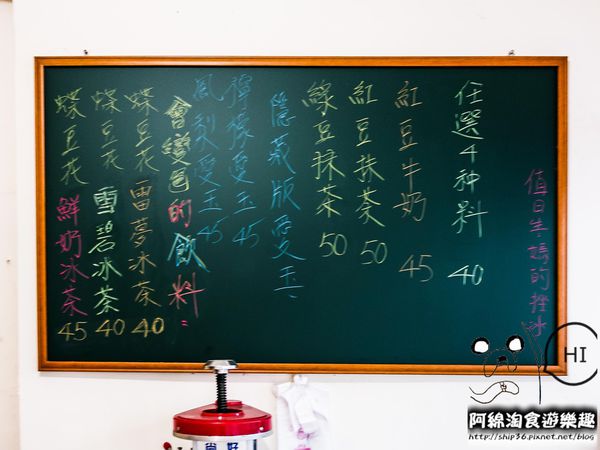 值日生媽的挫冰
任選4种料 40
紅豆牛奶 45
紅豆抹茶 50
綠豆抹茶 50
隱藏版愛玉:
檸檬愛玉 45
風梨愛玉 45
會變色的飲料:
蝶豆花雷夢冰茶 40
蝶豆花雪碧冰茶 40
蝶豆花鮮奶冰茶 45
HI
阿綿淘食遊樂趣
http://ship36.pixnet.net/blog